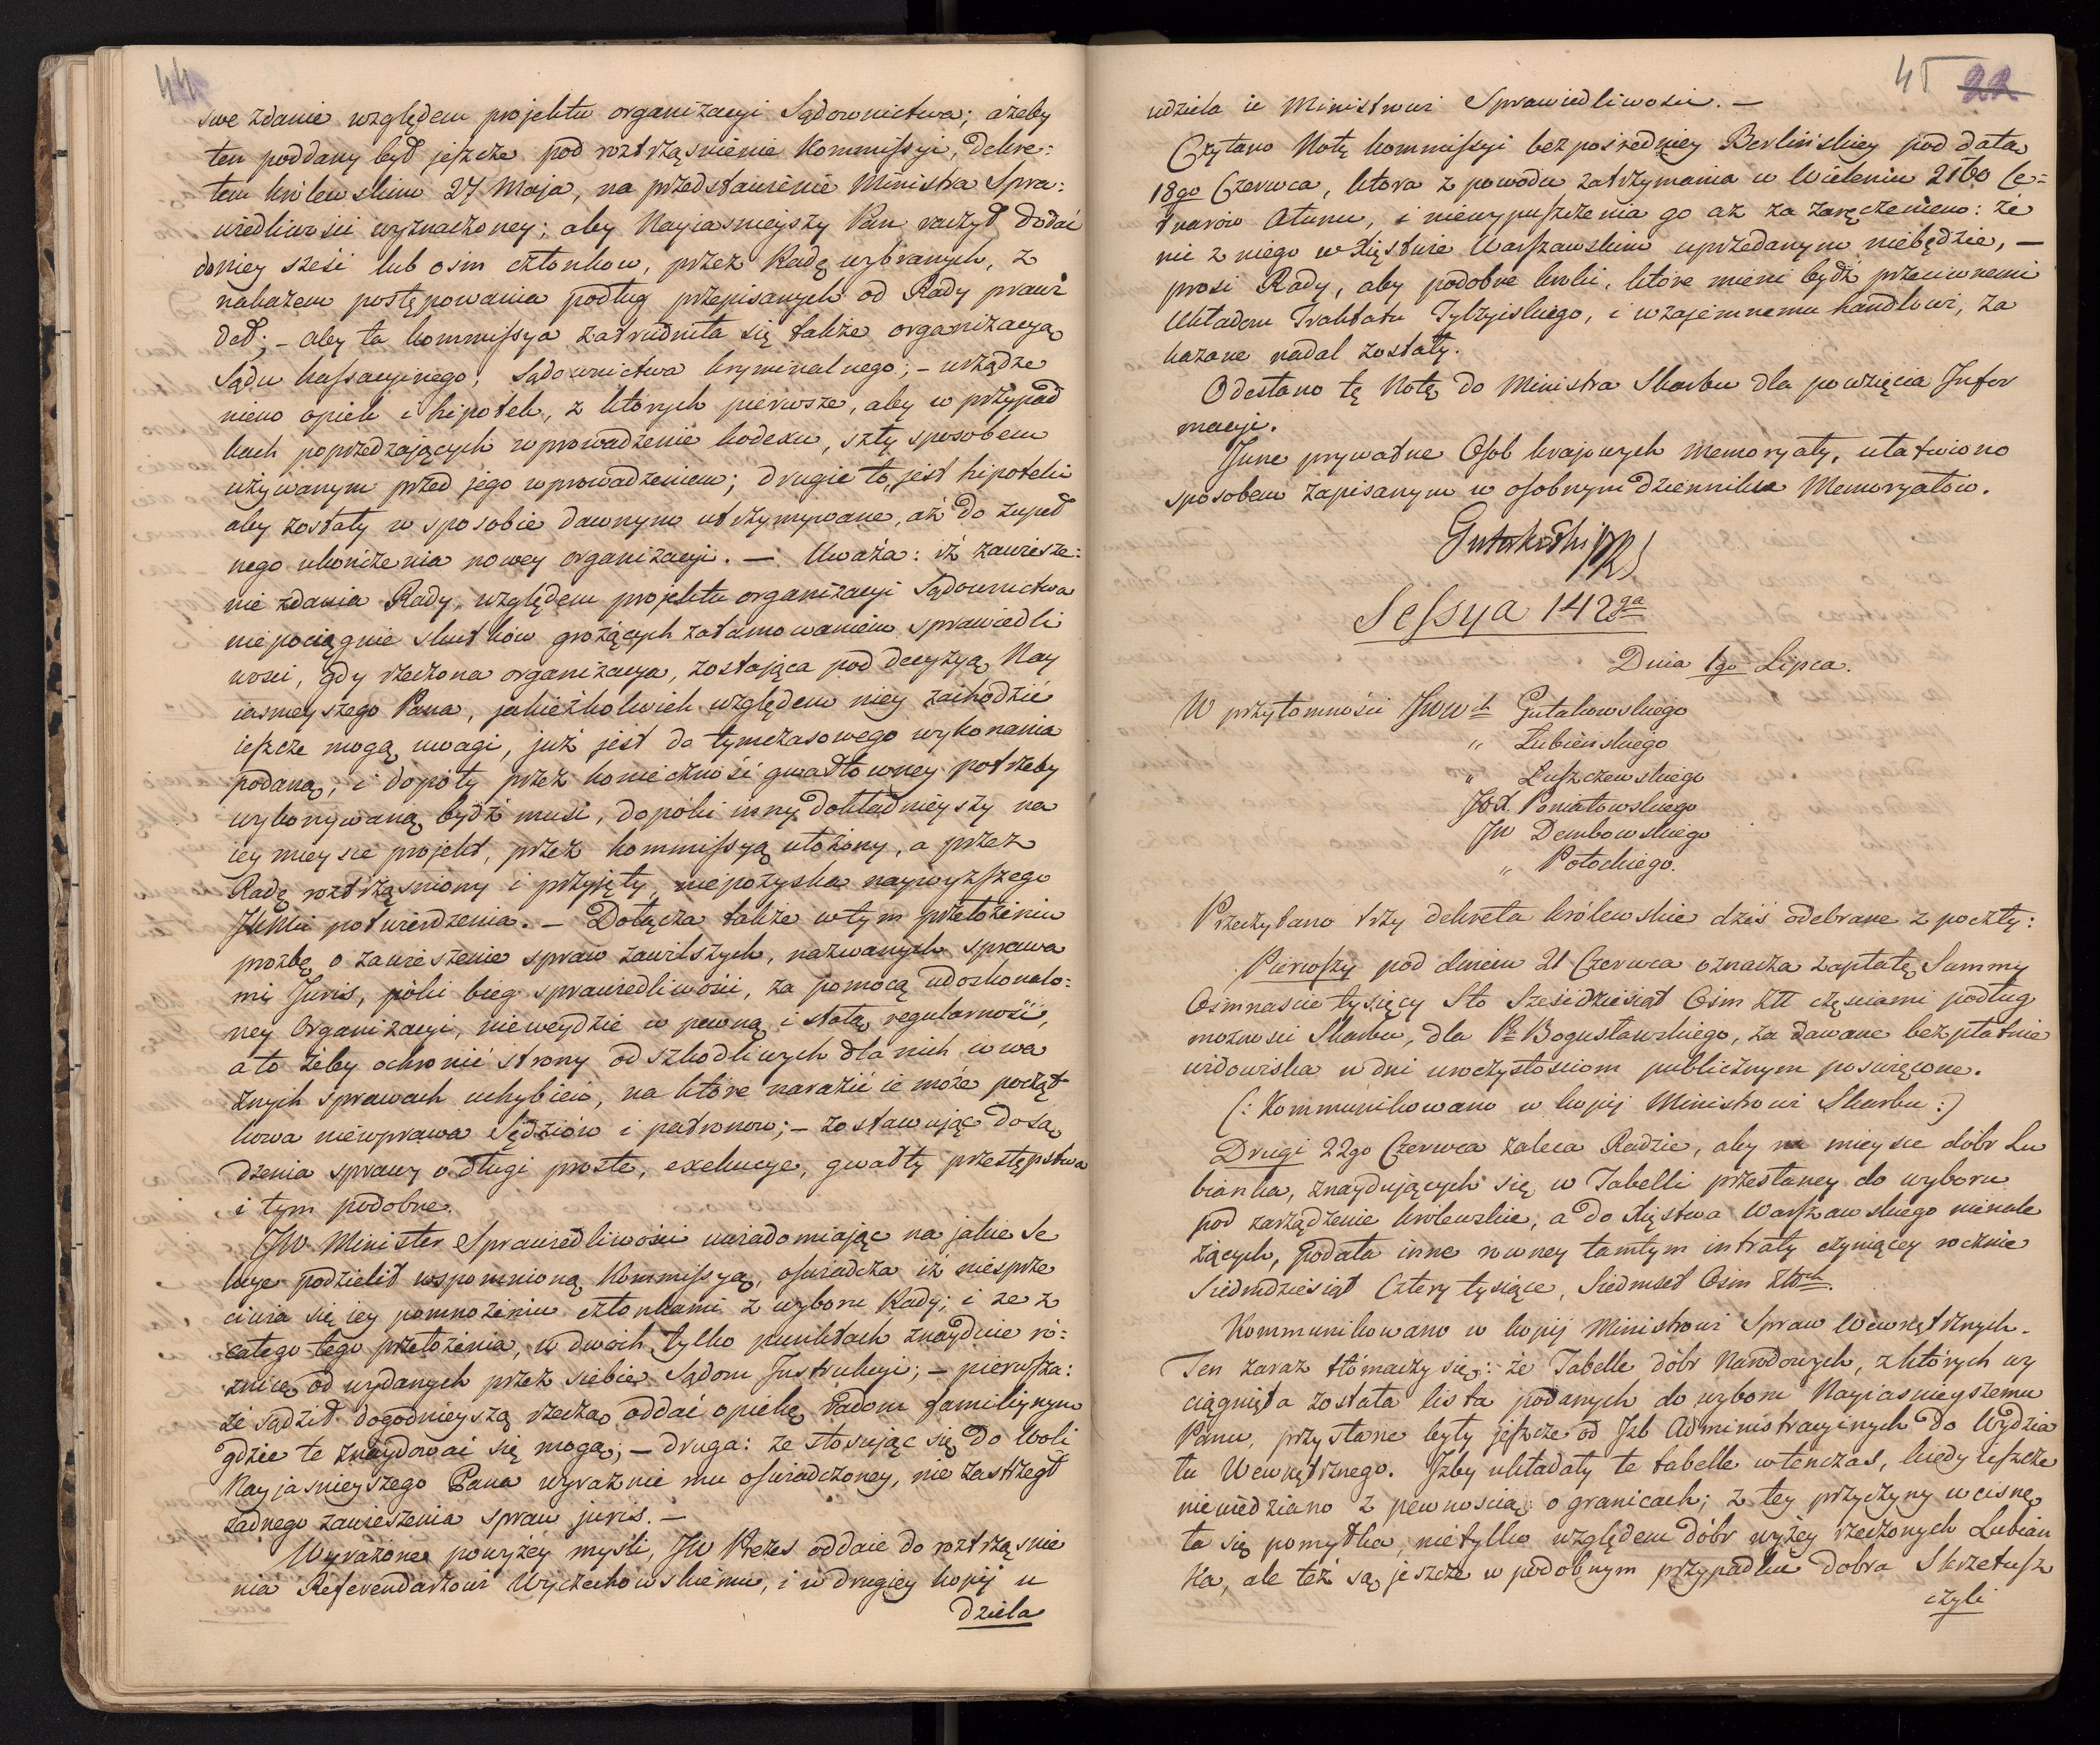 44
swe zdanie względem projektu organizacyi Sądownictwa; ażeby
ten poddany był jeszcze pod roztrząśnienie Kommissyi, dekre:
tem królewskim 27 Maja, na przedstawienie Ministra Spra:
wiedliwości wyznaczoney; aby Nayiasnieyszy Pan raczył dodać
doniey sześć lub ośm członkow, przez Radę wybranych, z
nakazem postępowania podług przepisanych od Rady prawi
deł; – aby ta kommissya zatrudniła się także organizacyą
Sądu kassacyinego, Sądownictwa kryminalnego; – urządze
niem opiek i hipotek, z których pierwsze, aby w przypad
kach poprzedzających wprowadzenie kodexu, szły sposobem
używanym przed jego wprowadzeniem; drugie to jest hipoteki
aby zostały w sposobie dawnym utrzymywane, aż do zupeł
nego ukończenia nowey organizacyi. – Uważa: iż zawiesze:
nie zdania Rady, względem projektu organizacyi Sądownictwa
niepociągnie skutków grożących zatamowaniem sprawiedli
wości, gdy rzeczona organizacya, zostająca pod decyzyą Nay
iasnieyszego Pana, jakieżkolwiek względem niey zachodzić
ieszcze mogą uwagi, już jest do tymczasowego wykonania
podaną, i dopóty przez konieczność gwałtowney potrzeby
wykonywaną bydź musi, dopóki inny dokładnieyszy na
iey mieysce projekt, przez kommissyą ułożony, a przez
Radę roztrząśniony i przyjęty, niepozyska naywyższego
JKMci potwierdzenia. – Dołącza także wtym przełożeniu
prozbę o zawieszenie spraw zawilszych, nazwanych sprawa
mi Juris, póki bieg sprawiedliwości, za pomocą udoskonalo:
ney Organizacyi, nieweydzie w pewną i stałą regularność,
a to żeby ochronić strony od szkodliwych dla nich w wa
żnych sprawach uchybień, na które narazić ie może począt
kowa niewprawa Sędziów i patronow; – zostawując do są
dzenia sprawy o długi proste, exekucye, gwałty przestępstwa
i tym podobne.
JW Minister Sprawiedliwości uwiadomiając na jakie Se
kcye podzielił wspomnioną Kommissyą, oświadcza iż niesprze
ciwia się iey pomnożeniu członkami z wyboru Rady; i że z
całego tego przełożenia, w dwóch tylko punktach znayduie ró:
żnicę od wydanych przez siebie Sądom Instrukcyi; – pierwsza:
że sądził dogodnieyszą rzeczą oddać opiekę radom familiynym
gdzie te znaydować się mogą; – druga: że stosując się do Woli
Nayjasnieyszego Pana wyraznie mu oświadczoney, nie zastrzegł
żadnego zawieszenia spraw juris. –
Wyrażone powyżéy myśli, JW Prezes oddaie do roztrząśnie
nia Referendarzowi Wyczechowskiemu, i w drugiey kopij u
dziela
45 22
udziela ie Ministrowi Sprawiedliwości. –
Czytano Notę kommissyi bezpośredniey Berlińskiey pod datą
18go Czerwca, która z powodu zatrzymania w Wieleniu 2160 Ce:
tnarów Ałunu, i niewypuszczenia go aż za zaręczeniem: że
nic z niego w Xięstwie Warszawskim uprzedanym niebędzie, –
prosi Rady, aby podobne kroki, które mieni bydź przeciwnemi
Układom Traktatu Tylżyiskiego, i wzajemnemu handlowi, za
kazane nadal zostały.
Odesłano tę Notę do Ministra Skarbu dla powzięcia Infor
macyi.
Inne prywatne Osób krajowych memoryały, ułatwiono
sposobem zapisanym w osobnym dzienniku Memoryałów.
Gutakowski PRS
Sessya 142ga
Dnia 1go Lipca.
W przytomności JWWch Gutakowskiego
" Łubieńskiego
" Łuszczewskiego
JOX. Poniatowskiego
JW Dembowskiego
" Potockiego.
Przeczytano trzy dekreta królewskie dziś odebrane z poczty:
Pierwszy pod dniem 21 Czerwca oznacza zapłatę Summy
Ośmnaście tysięcy Sto Sześćdziesiąt Ośm Złł częściami podług
możności Skarbu, dla Pa Bogusławskiego, za dawane bezpłatnie
widowiska w dni uroczystościom publicznym poświęcone.
(: Kommunikowano w kopij Ministrowi Skarbu :)
Drugi 22go Czerwca zaleca Radzie, aby na mieysce dóbr Lu
bianka, znaydujących się w Tabelli przesłaney do wyboru
pod zarządzenie królewskie, a do Xięstwa Warszawskiego nienale
żących, podała inne rowney tamtym intraty czyniącey rocznie
Siedmdziesiąt Cztery tysiące, Siedmset Ośm Złoch.
Kommunikowano w kopij Ministrowi Spraw Wewnętrznych.
Ten zaraz tłómaczy się: że Tabelle dóbr Narodowych, z których wy
ciągnięta została lista podanych do wyboru Nayiasnieyszemu
Panu, przysłane były jeszcze od Izb Administracyinych do Wydzia
łu Wewnętrznego. Izby układały te tabelle wtenczas, kiedy ieszcze
niewiedziano z pewnością o granicach; z tey przyczyny wcisnę
ła się pomyłka, nietylko względem dóbr wyżey rzeczonych Lubian
ka, ale też są jeszcze w podobnym przypadku dobra Skrzetusz
czyli